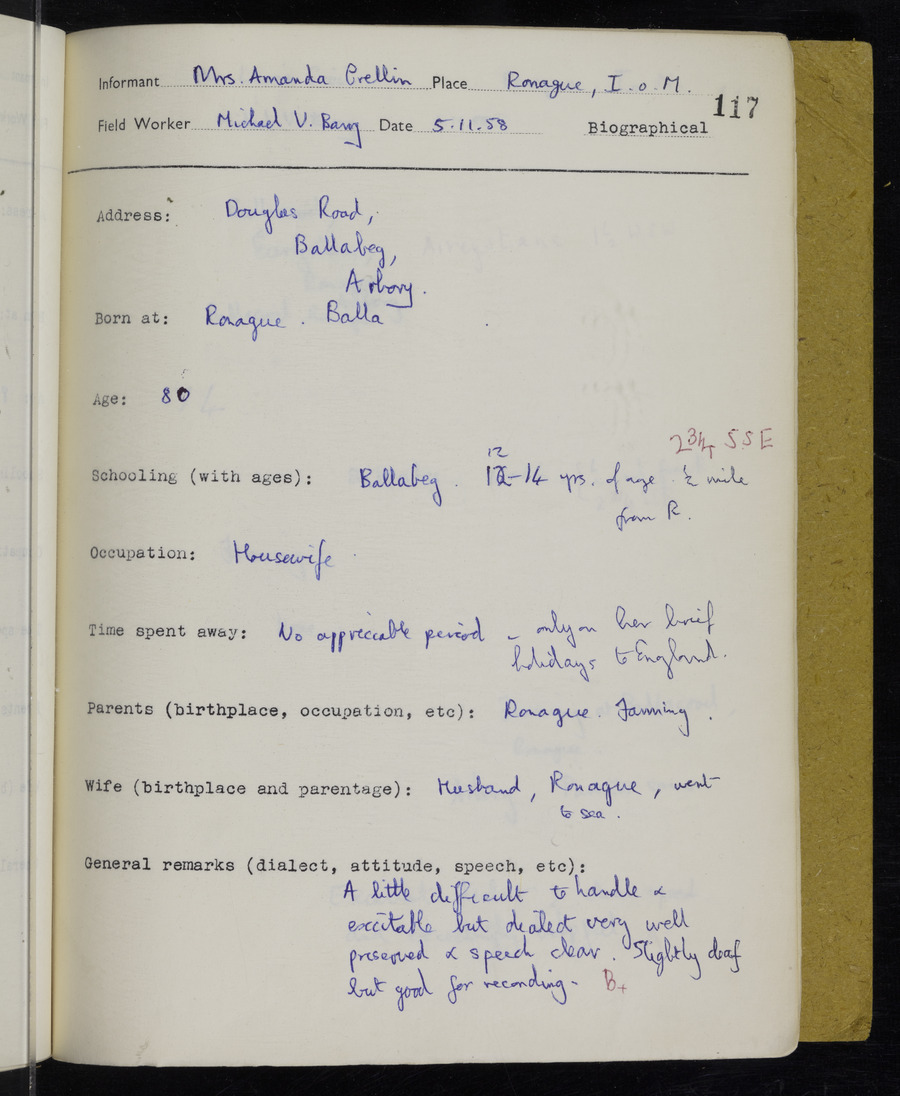 Informant Mrs. Amanda Crellin Place Ronague, I.o.M.
117
Field Worker Michael V. Barry Date 5.11.58 Biographical
Address: Douglas Road,
Ballabeg,
Arbory.
Born at: Ronague. Balla
Age: 80
234 SSE
12
Schooling (with ages): Ballabeg. 12-14 yrs. of age. ½ mile
from R.
Occupation: Housewife
Time spent away: No appreciable period - only on her brief
holidays to England.
Parents (birthplace, occupation, etc): Ronague. Farming.
Wife (birthplace and parentage): Husband, Ronague, went
to sea.
General remarks (dialect, attitude, speech, etc):
A little difficult to handle &
excitable but dialect very well
preserved & speech clear. Slightly deaf
but good for recording - B+